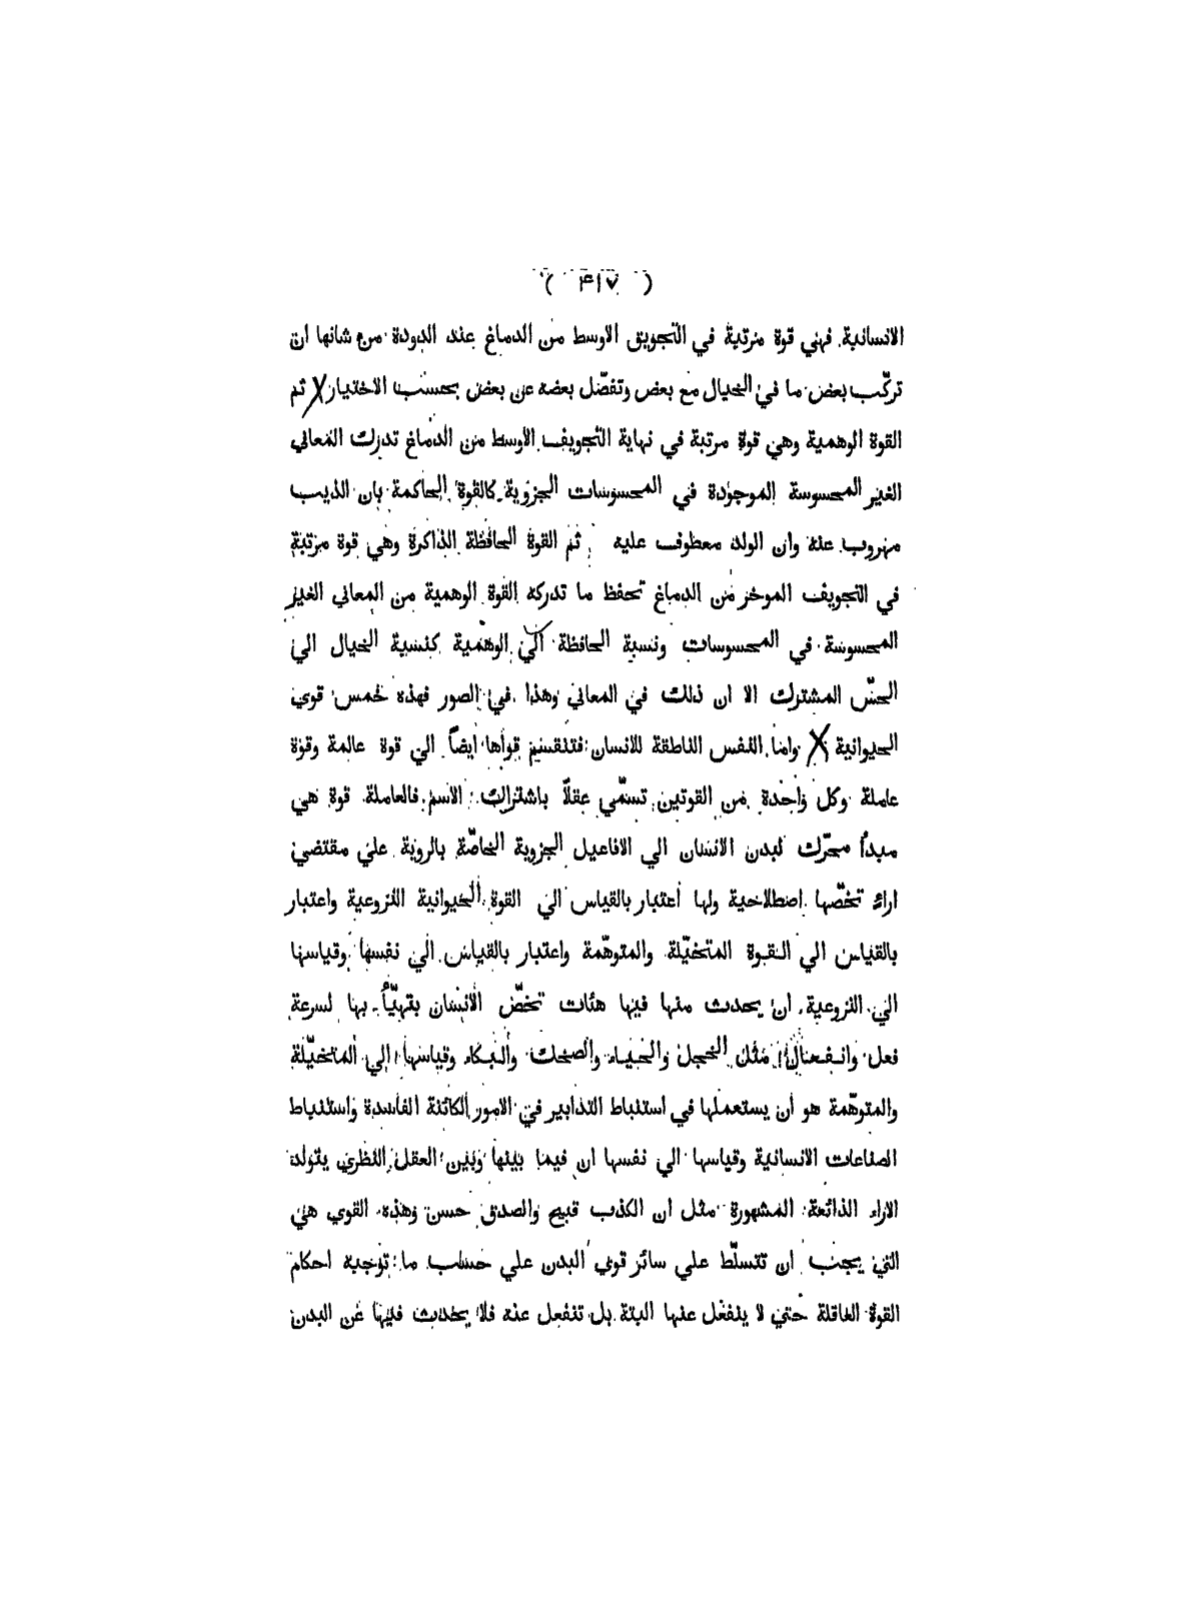 ( ۴۱۷ )
الانسانية فهي قوة مرتبة في التجويف الاوسط من الدماغ عند الدودة من شانها ان
تركّب بعض ما في الخيال مع بعض وتفصّل بعضه عن بعض بحسب الاختيار ثم
القوة الوهمية وهي قوة مرتبة في نهاية التجويف الاوسط من الدماغ تدرك المعاني
الغير المحسوسة الموجودة في المحسوسات الجزوية كالقوة الحاكمة بان الذيب
مهروب عنه وان الولد معطوف عليه ثم القوة الحافظة الذاكرة وهي قوة مرتبة
في التجويف الموخر من الدماغ تحفظ ما تدركه القوة الوهمية من المعاني الغير
المحسوسة في المحسوسات ونسبة الحافظة الي الوهمية كنسبة الخيال الي
الحسّ المشترك الا ان ذلك في المعاني وهذا في الصور فهذه خمس قوي
الحيوانية واما النفس الناطقة للانسان فتنقسم قواها ايضاً الي قوة عالمة وقوة
عاملة وكل واحدة من القوتين تسمّي عقلاً باشتراك الاسم فالعاملة قوة هي
مبدأ محرّك لبدن الانسان الي الافاعيل الجزوية الخاصّة بالروية علي مقتضي
اراء تخصّها اصطلاحية ولها اعتبار بالقياس الي القوة الحيوانية النزوعية واعتبار
بالقياس الي القوة المتخيّلة والمتوهّمة واعتبار بالقياس الي نفسها وقياسها
الي النزوعية ان يحدث منها فيها هئات تخصّ الانسان يتهيّأ بها لسرعة
فعل وانفعال مثل الخجل والحياء والضحك والبكاء وقياسها الي المتخيّلة
والمتوهّمة هو ان يستعملها في استنباط التدابير في الامور الكائنة الفاسدة واستنباط
الصناعات الانسانية وقياسها الي نفسها ان فيما بينها وبين العقل النظري يتولد
الاراء الذائعة المشهورة مثل ان الكذب قبيح والصدق حسن وهذه القوي هي
التي يجب ان تتسلّط علي سائر قوي البدن علي حساب ما توجبه احكام
القوة العاقلة حتي لا ينفعل عنها البتة بل تنفعل عنه فلا يحدث فيها عن البدن